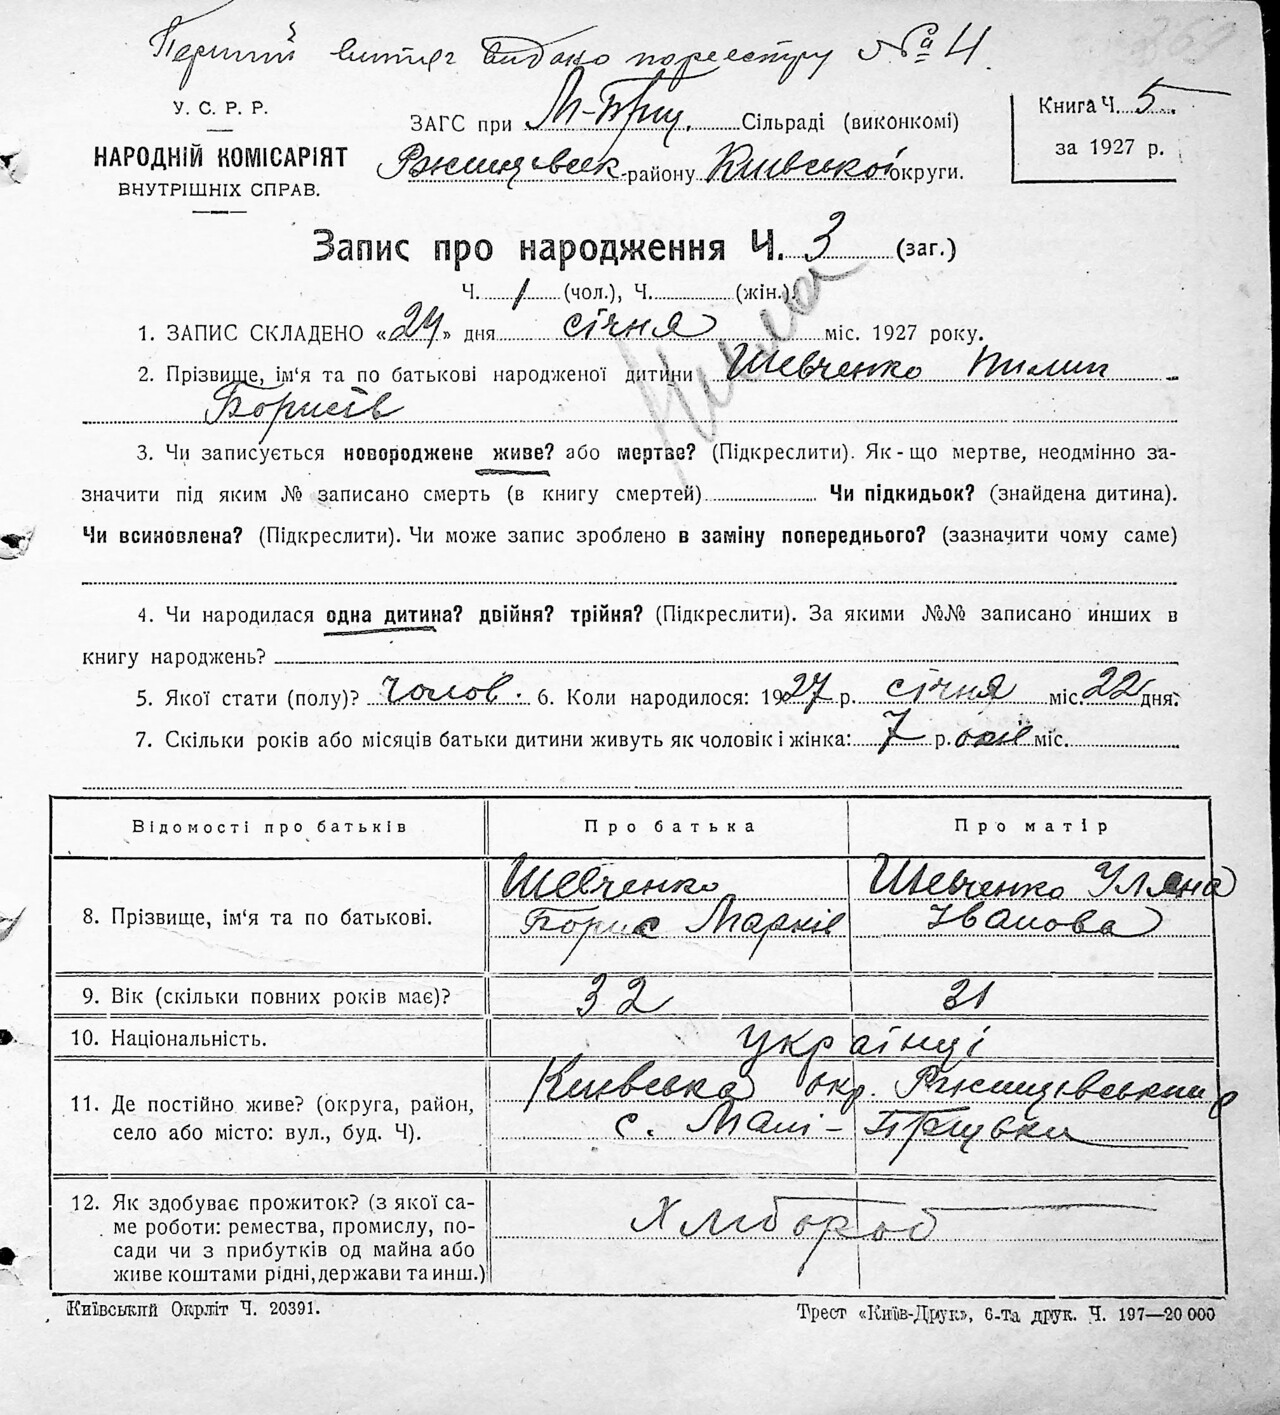 Перший витяг видано по реєстру № 4
У. С. Р. Р.
НАРОДНІЙ КОМІСАРІЯТ
ВНУТРІШНІХ СПРАВ.
ЗАГС при М-Прц. Сільраді (виконкомі)
Ржищівськ району Київської округи.
Книга Ч. 5
за 1927 р.
Запис про народження Ч. 3 (заг.)
Ч. 1 (чол.), Ч. (жін.)
1. ЗАПИС СКЛАДЕНО «24» дня січня міс. 1927 року.
2. Прізвище, ім'я та по батькові народженої дитини Шевченко Пилип
Борисів
3. Чи записується новороджене живе? або мертве? (Підкреслити). Як-що мертве, неодмінно за-
значити під яким № записано смерть (в книгу смертей) Чи підкидьок? (знайдена дитина).
Чи всиновлена? (Підкреслити). Чи може запис зроблено в заміну попереднього? (зазначити чому саме)
4. Чи народилася одна дитина? двійня? трійня? (Підкреслити). За якими №№ записано инших в
книгу народжень?
5. Якої стати (полу)? чолов. 6. Коли народилося: 1927 р. січня міс. 22 дня.
7. Скільки років або місяців батьки дитини живуть як чоловік і жінка: 7 р. міс.
Відомості про батьків Про батька Про матір
8. Прізвище, ім'я та по батькові. Шевченко Борис Марків Шевченко Уляна Іванова
9. Вік (скільки повних років має)? 32 31
10. Національність. Українці
11. Де постійно живе? (округа, район, Київська окр. Ржищівський р
село або місто: вул., буд. Ч). с. Малі-Прицьки
12. Як здобуває прожиток? (з якої са- Хлібороб
ме роботи: ремества, промислу, по-
сади чи з прибутків од майна або
живе коштами рідні, держави та инш.)
Київський Окрліт Ч. 20391.
Трест «Київ-Друк», 6-та друк. Ч. 197—20 000